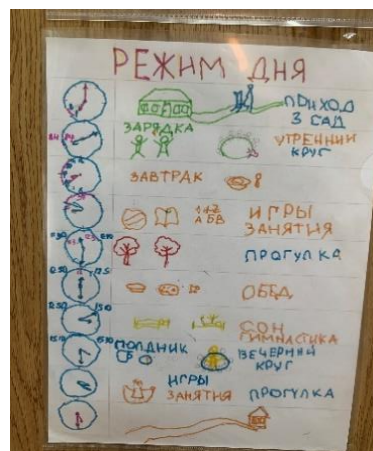 РЕЖИМ ДНЯ
ПРИХОД
В САД
ЗАРЯДКА
УТРЕННИЙ
КРУГ
ЗАВТРАК
1+2
АБВ
ИГРЫ
ЗАНЯТИЯ
ПРОГУЛКА
ОБЕД
СОН
ГИМНАСТИКА
ПОЛДНИК
ВЕЧЕРНИЙ
КРУГ
ИГРЫ
ЗАНЯТИЯ ПРОГУЛКА